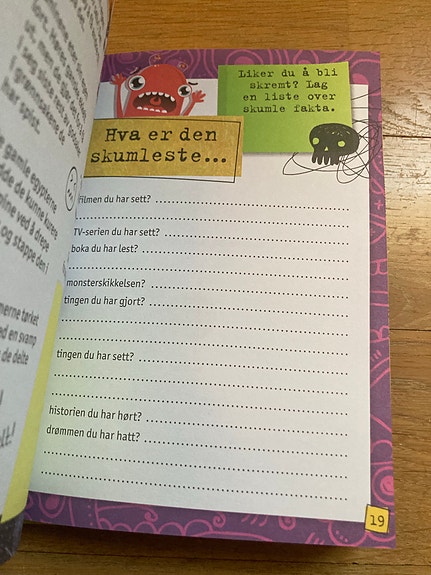 gamle egypterne
de kunne kurere
ved å drepe
og stappe den i
merne tørket
ed en svamp
de delte
Liker du å bli
skremt? Lag
en liste over
skumle fakta.
Hva er den
skumleste...
filmen du har sett?
TV-serien du har sett?
boka du har lest?
monsterskikkelsen?
tingen du har gjort?
tingen du har sett?
historien du har hørt?
drømmen du har hatt?
19